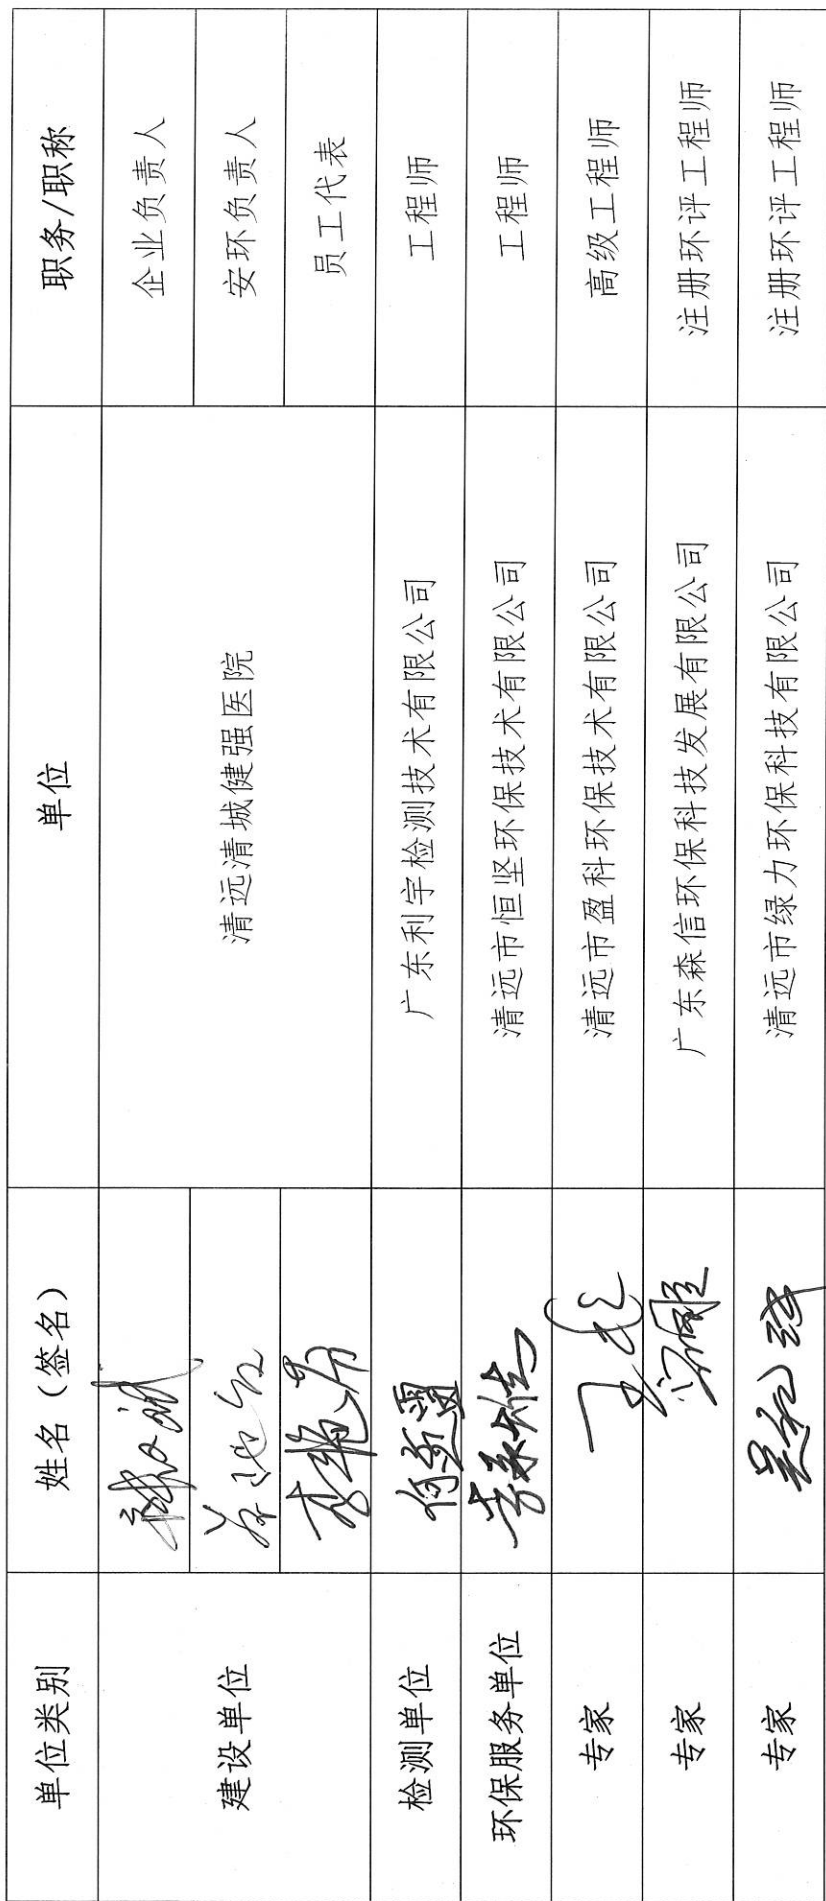 单位类别 姓名（签名） 单位 职务/职称
建设单位 清远清城健强医院 企业负责人
安环负责人
员工代表
检测单位 广东利宇检测技术有限公司 工程师
环保服务单位 清远市恒坚环保技术有限公司 工程师
专家 清远市盈科环保技术有限公司 高级工程师
专家 广东森信环保科技发展有限公司 注册环评工程师
专家 清远市绿力环保科技有限公司 注册环评工程师